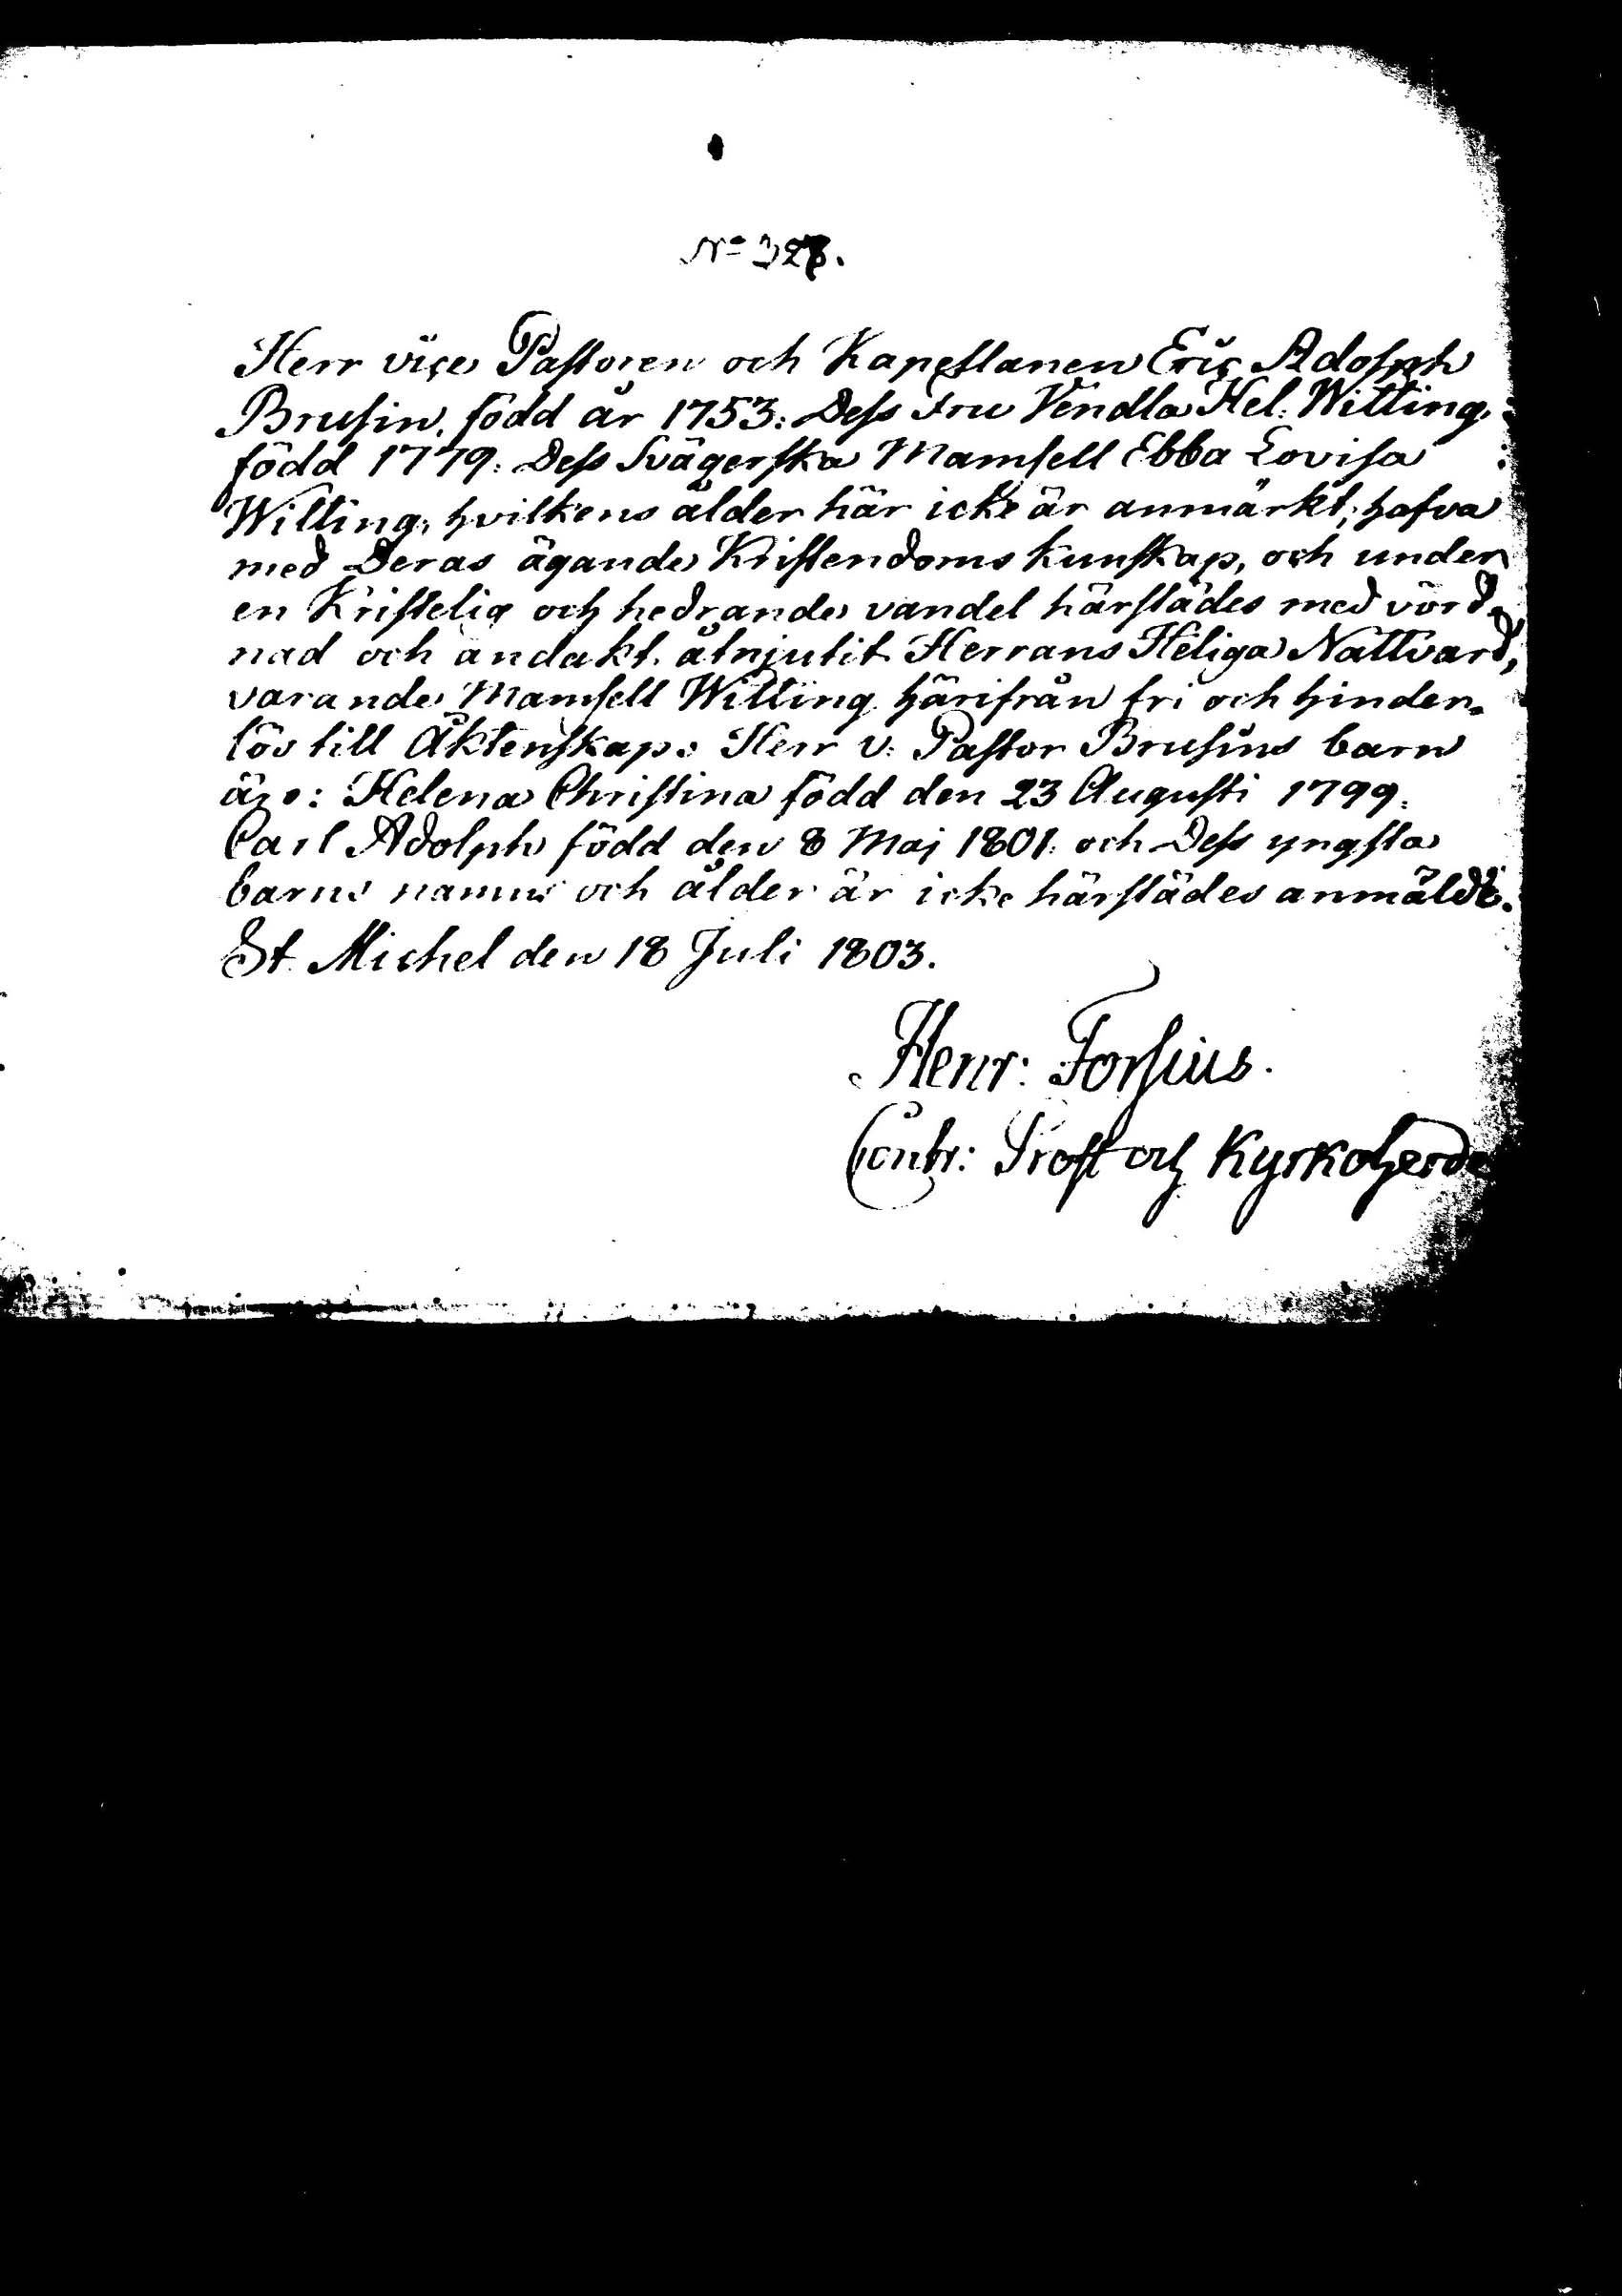 No 328.
Herr vice Pastoren och Kapellanen Eric Adolph
Brusin, född år 1753: Dess Fru Vendla Hel: Witting,
född 1779: Dess Svägerska Mamsell Ebba Lovisa
Witting, hvilkens ålder här icke är anmärkt, hafva
med Deras ägande Kristendoms kunskap, och under
en Kristelig och hedrande vandel härstädes med vörd-
nad och andakt åtnjutit Herrans Heliga Nattvard,
varande Mamsell Witting härifrån fri och hinder-
lös till Äktenskap: Herr v: Pastor Brusins barn
äro: Helena Christina född den 23 Augusti 1799:
Carl Adolph född den 8 Maj 1801: och Dess yngsta
barns namn och ålder är icke härstädes anmäldt.
St. Michel den 18 Juli 1803.
Henr: Forsius.
Contr: Prost och Kyrkoherde